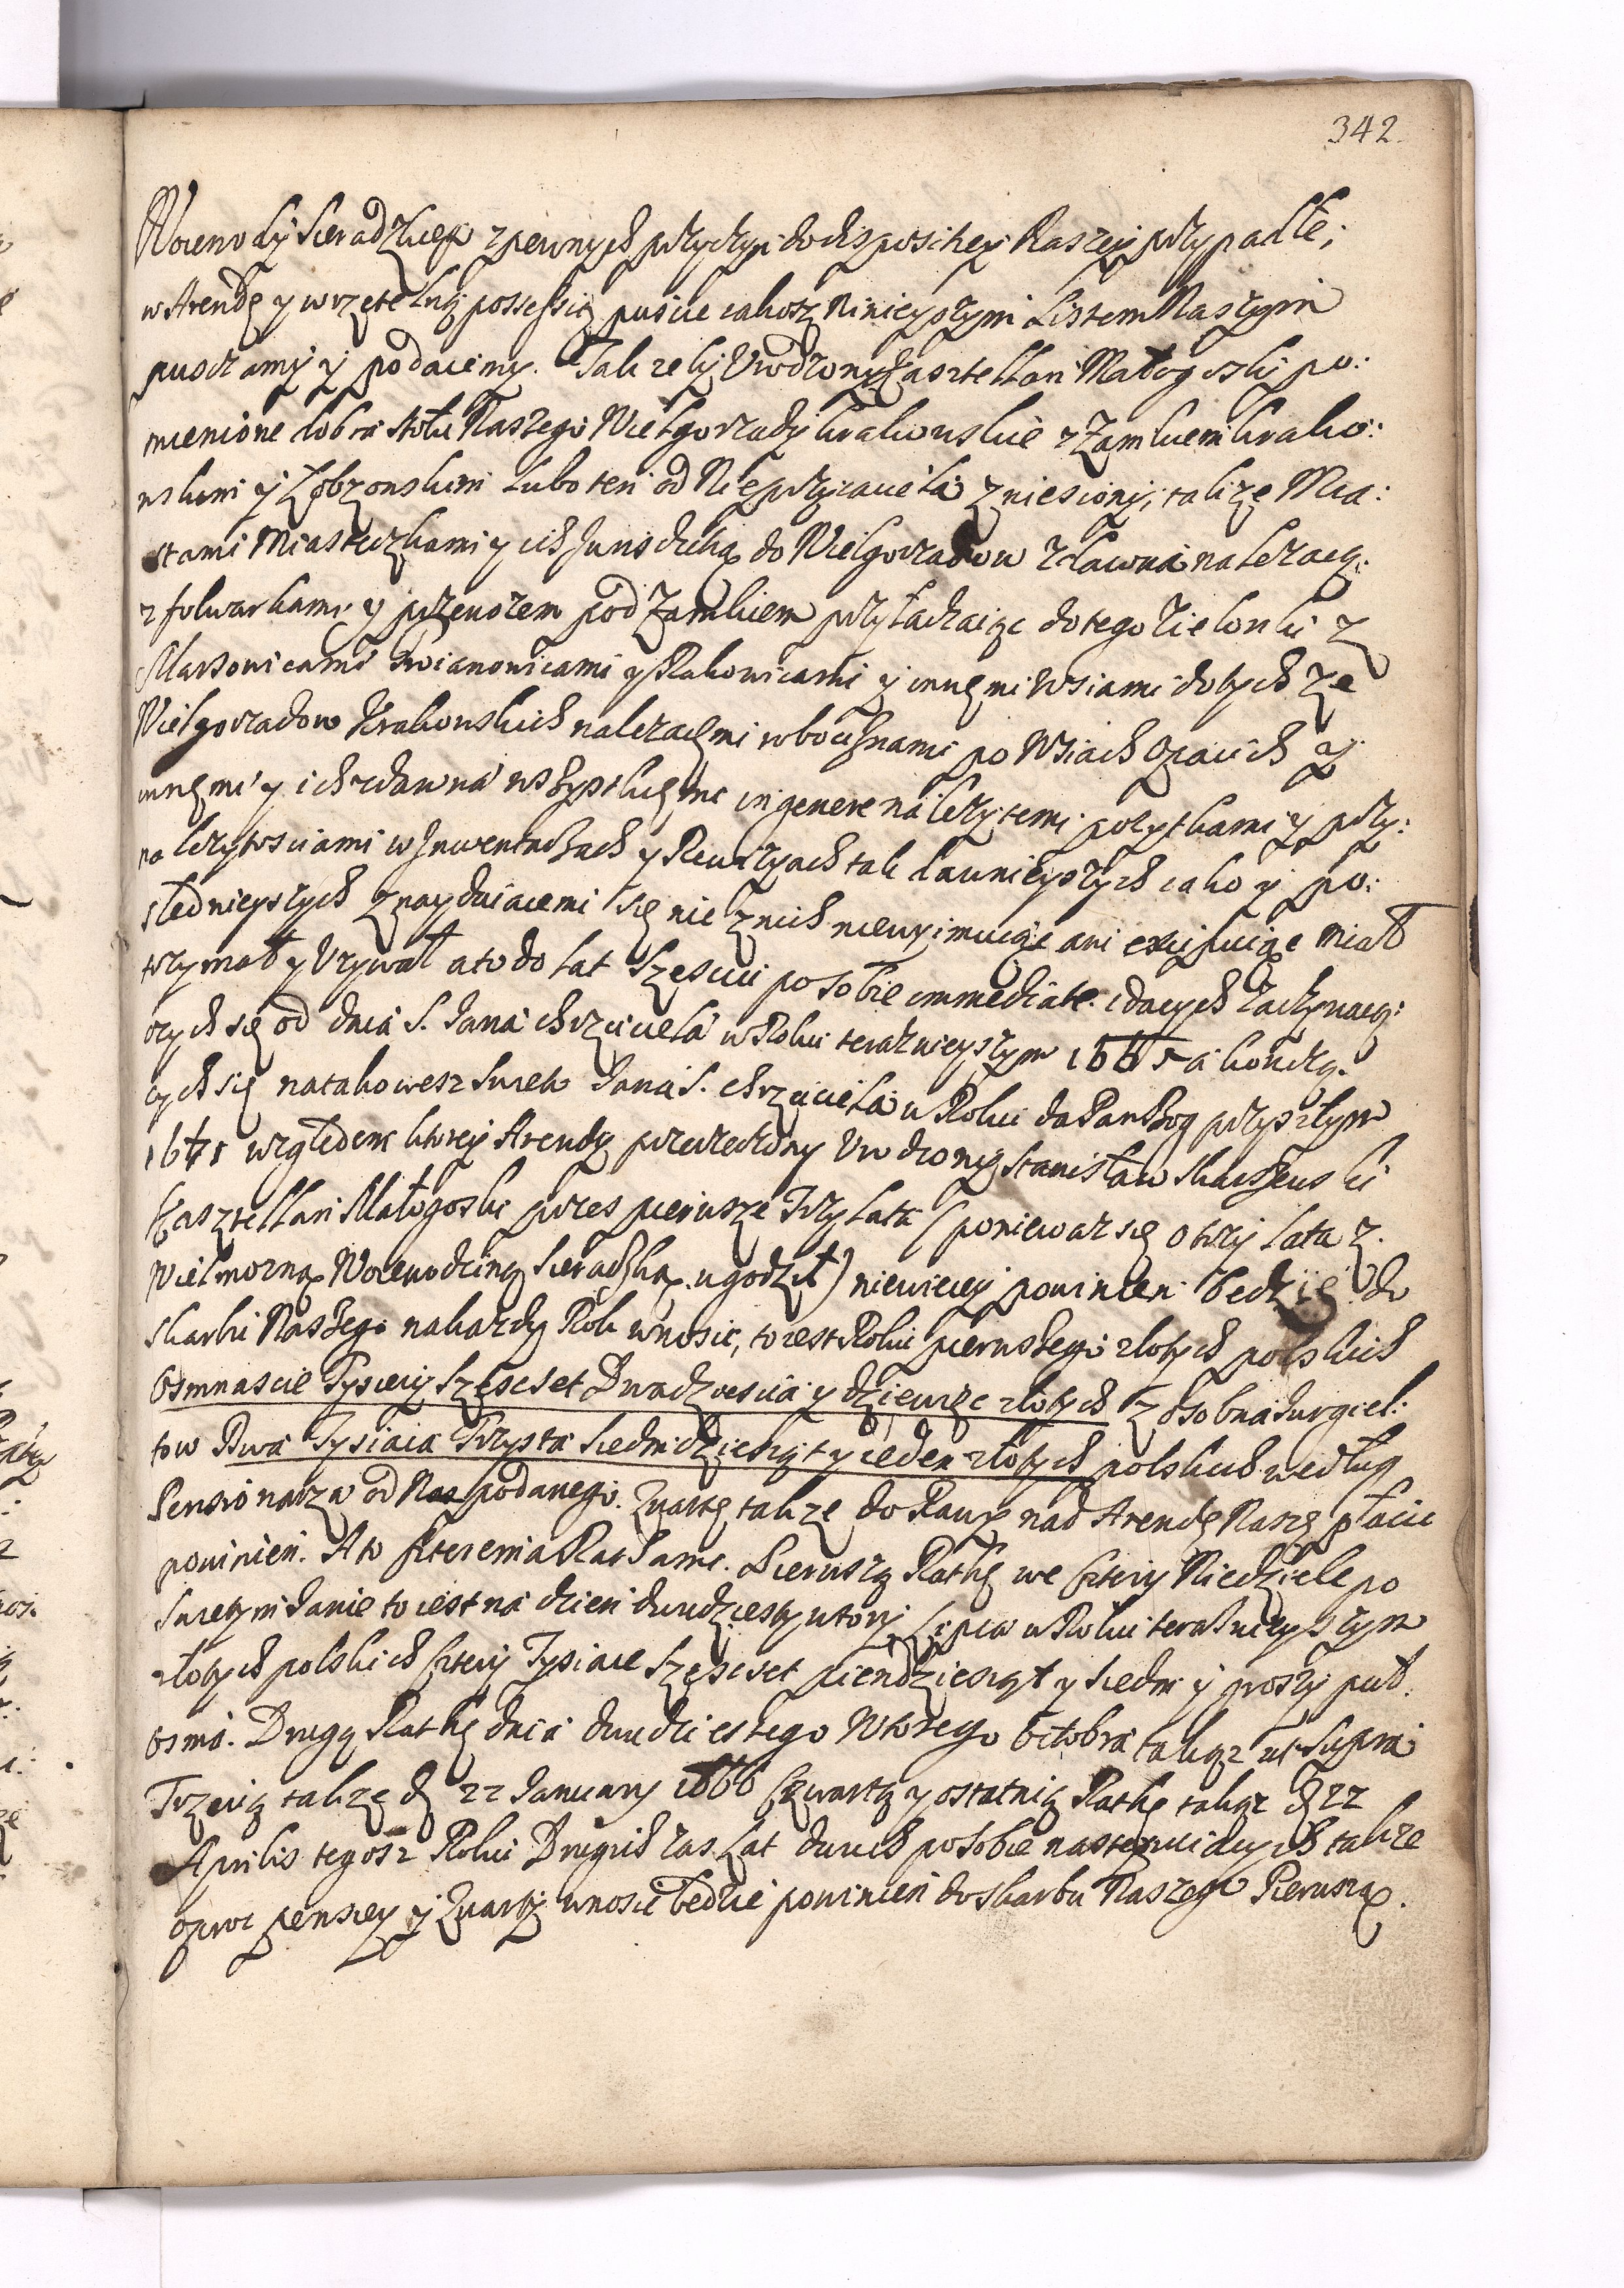 342.
Woiewody Sieradzkiey z pewnych przyczyn do dispositiey Naszey przypadłe;
w Arendę y w rzętelną possessią puścic iakosz ninieyszym Listem Naszym
pusczamy y podaiemy. Tak ze by Vrodzony Kasztellan Małogoski po:
mienione dobra stołu Naszego Wielgorzady krakowskie z Zamkiem krako:
wskim y Łobzowskim lubo ten od Nieprzyiaciela zniesiony, takze Mia:
stami Miasteczkami y ich Jurisdictią do Wielgorządow zdawna nalezacą:
z folwarkami y przewozem pod Zamkiem przyłączaiąc do tego Zielonki z
Marszowicami Woianowicami y Rakowicami y innęmi Wsiami do tych ze
Wielgorządow Krakowskich nalezącęmi robociznami po Wsiach Ozacich y
innęmi y ich zdawna wszystkięmi in genere nalezytemi pozytkami y przy:
nalezytosciami w Inwentarzach y Rewizyach tak dawnieyszych iako y po:
slednieyszych znayduiacemi się nic z nich niewyimuiąc ani excipuiąc miał
trzymał y Vzywał a to do lat szesciu po sobie immediate idących zaczynaią:
cych się od dnia S. Jana chrzciciela w Roku teraznieyszym 1665 a koncżą:
cych się na takowesz Swieto Jana S. chrzciciela w Roku da Pan Bog przyszłym
1671 względem ktorey Arendy przerzeczony Vrodzony Stanisław Skarszewski
Kasztellan Małogoski przes pierwsze Trzy Lata (poniewaz się o trzy lata z
Wielmozną Woiewodziną Sieradzką ugodził) niewięcey powinien będzie do
skarbu Naszego na kazdy Rok wnosic, to iest Roku pierwszego złotych polskich
Osmnascie Tysięcy Szescset Dwadziescia y dziewięc złotych z osobna Jurgiel:
tow Dwa Tysiaca Trzysta Siedmdziesiąt y ieden złotych polskich według
Pensionarza od Nas podanego. Kwartę takze do Rawy nad Arendę Naszę płacic
powinien. A to szterema Rathami. Pierwszą Rathę we sztery Niedziele po
Swietym Janie to iest na dzien dwudziesty wtory Lipca w Roku teraznieyszym
złotych polskich sztery Tysiące Szescset piendziesiąt y Siedm y groszy puł
osma. Drugą Rathę dnia dwudziestego Wtorego Octobra takąz ut supra
Trzecią takze d 22 January 1666 Czwartą y ostatnią Rathę takąz d 22
Aprilis tegosz Roku Drugich zas Lat dwuch po sobie następuiących takze
oprocz pensiey y Kwarty wnosic będzie powinien do skarbu Naszego Pierwszą.